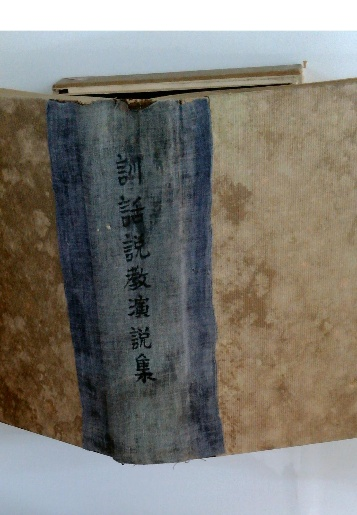 訓話説教演説集